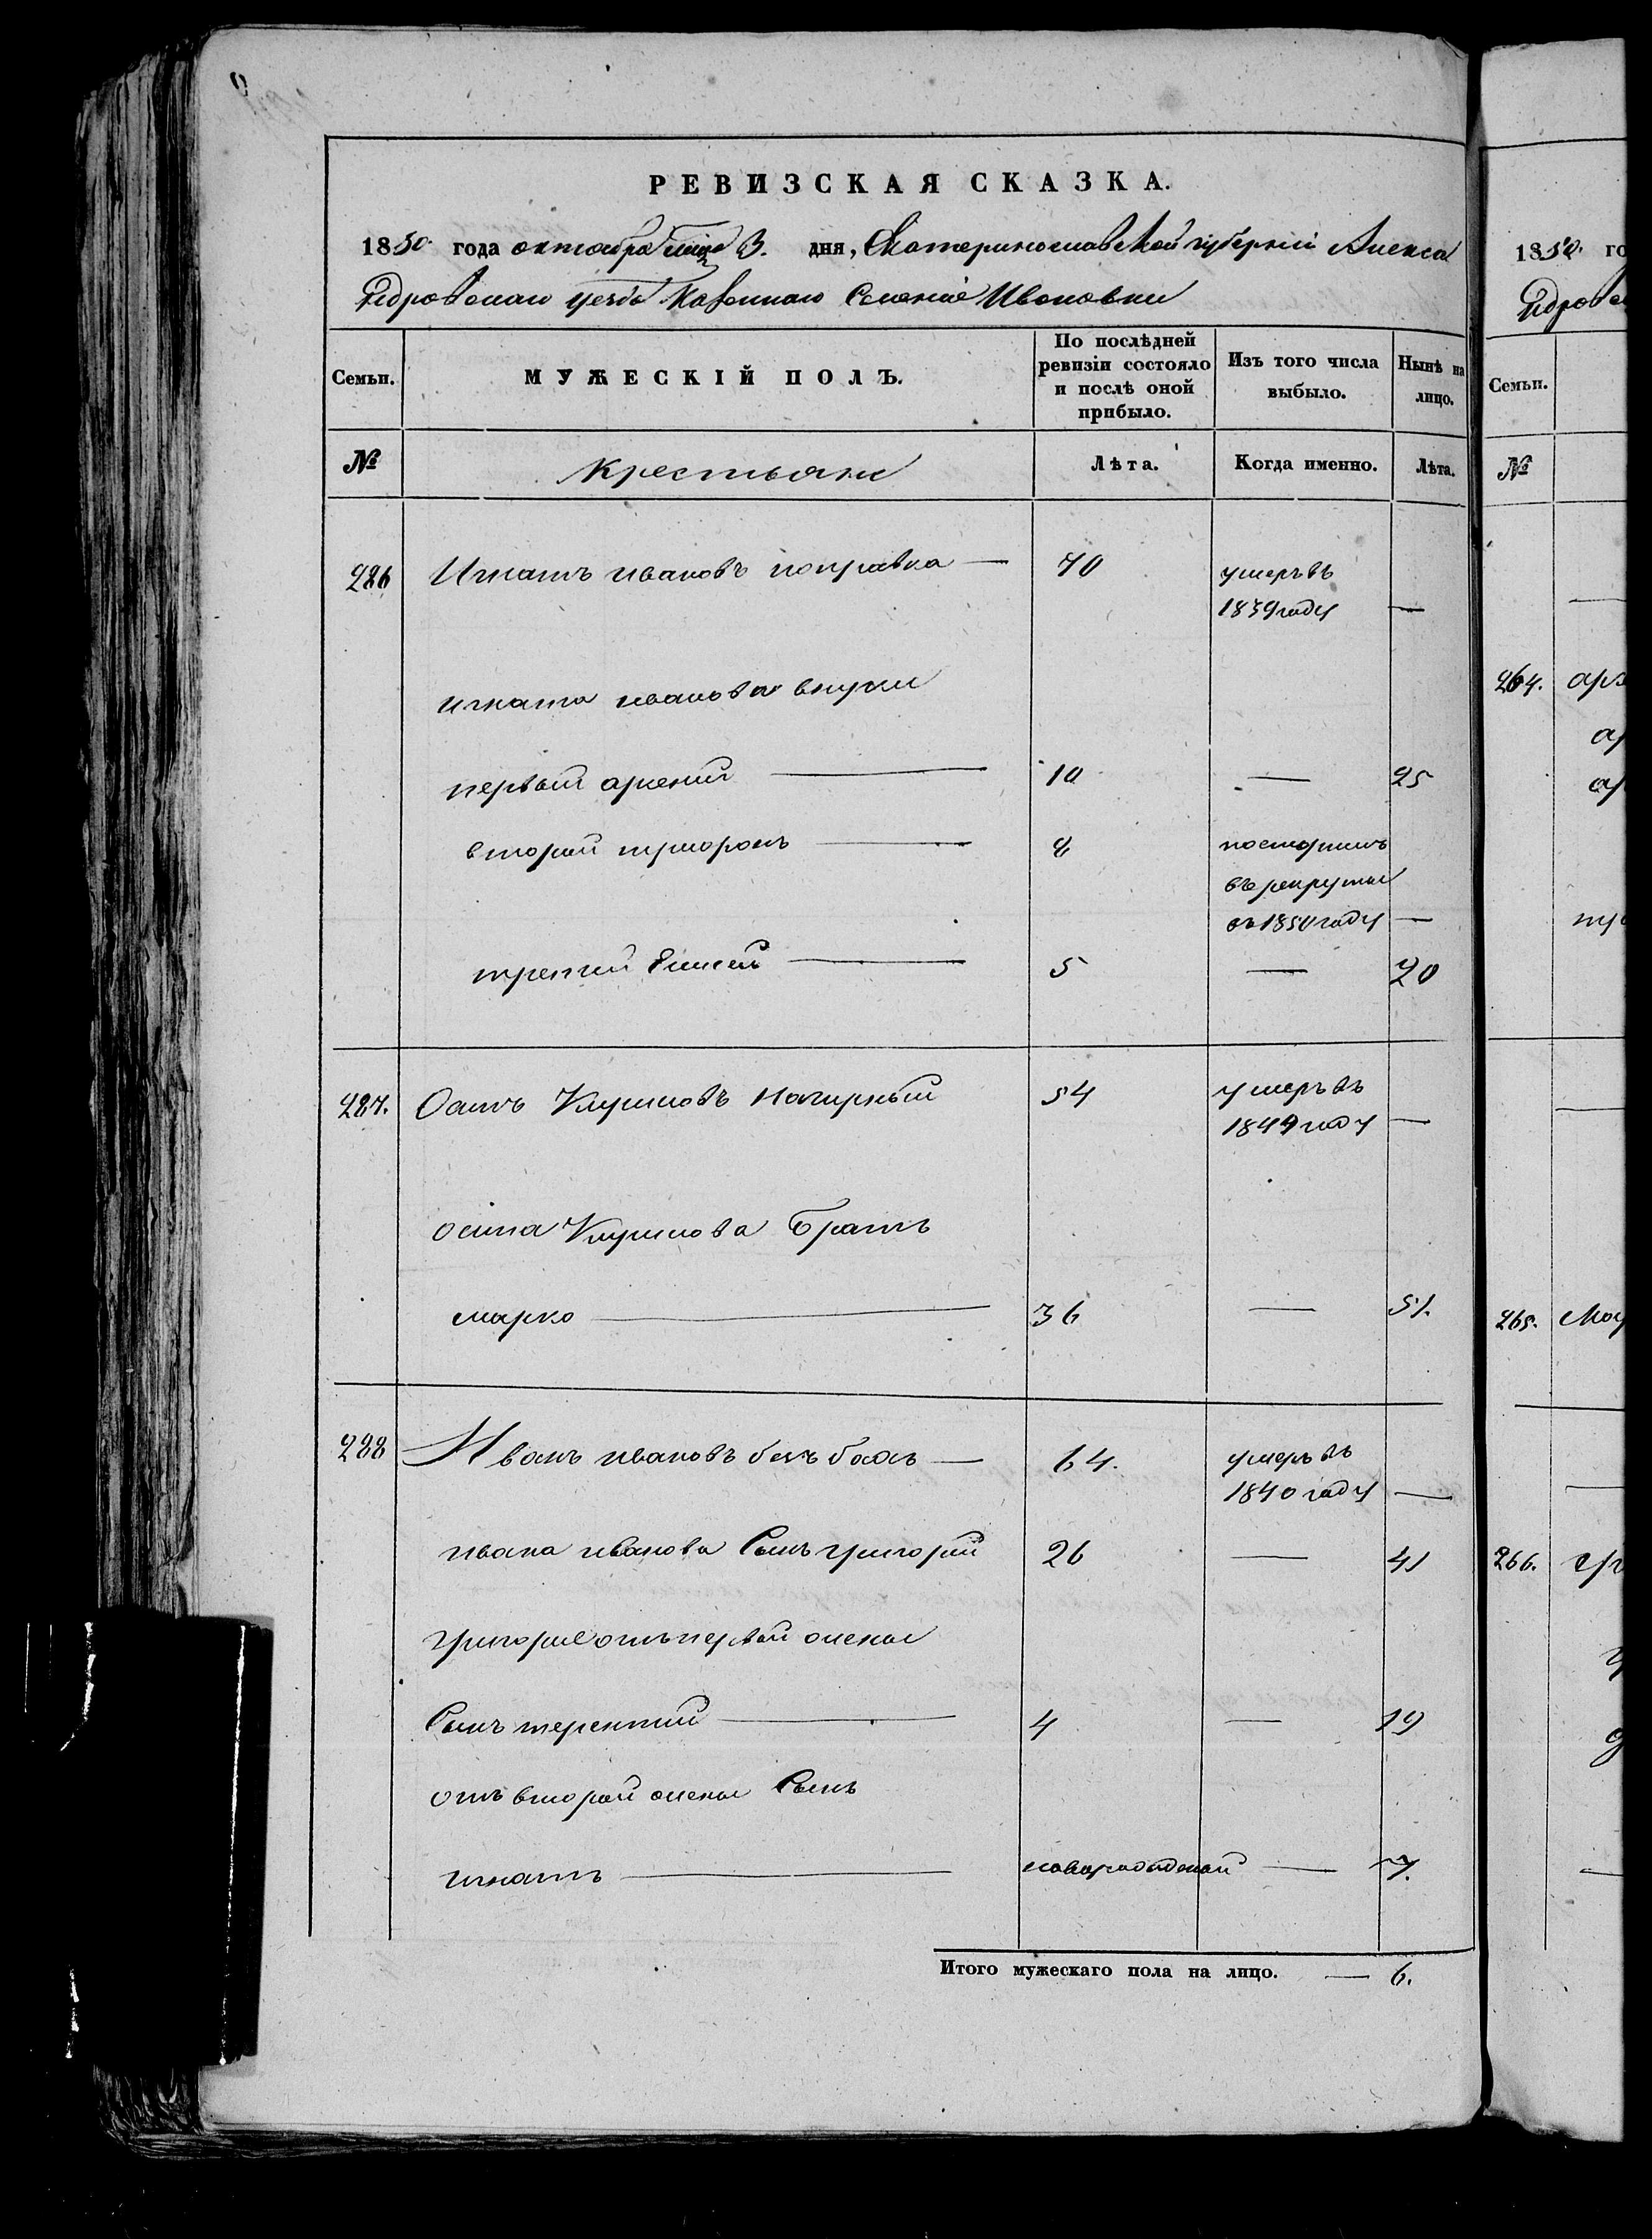 РЕВИЗСКАЯ СКАЗКА.
1850 года октября месяца 3. дня, Екатеринославской губернии Алекса
ндровскаго уезда Казеннаго Селения Ивановки
Семьи. МУЖЕСКІЙ ПОЛЪ. По послѣдней ревизіи состояло и послѣ оной прибыло. Изъ того числа выбыло. Нынѣ на лицо.
№ Крестьяне Лѣта. Когда именно. Лѣта.
286 Игнатъ ивановъ поправка — 70 умеръ въ
1839 году —
игната иванова внуки
первый арсений — 10 — 25
второй трифонъ — 8 поступилъ
въ рекруты
въ 1850 году —
третий Елисей — 5 — 20
287. Осипъ 54 умеръ въ
1849 году —
осипа братъ
марко — 36 — 51.
288 Иванъ ивановъ — 64. умеръ въ
1840 году —
ивана иванова Сынъ григорий 26 — 41
григория отъ первой жены
Сынъ терентий — 4 — 19
отъ второй жены Сынъ
игнатъ — новорожденой — 7.
Итого мужескаго пола на лицо. — 6.
1850. го
ндровс
Семьи.
№
264.
265.
266.